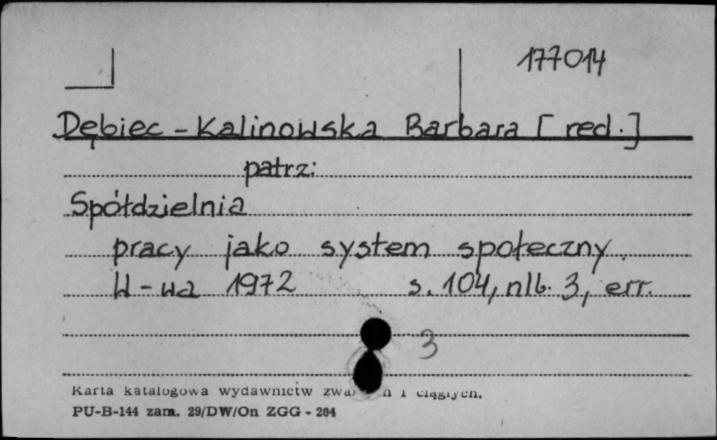 177014
Dębiec - Kalinowska Barbara [red.]
patrz:
Spółdzielnia
pracy jako system społeczny.
W-wa 1972 s. 104, nlb. 3, err.
3
Karta katalogowa wydawnictw i ciągłych.
PU-B-144 zam. 29/DW/On ZGG - 204